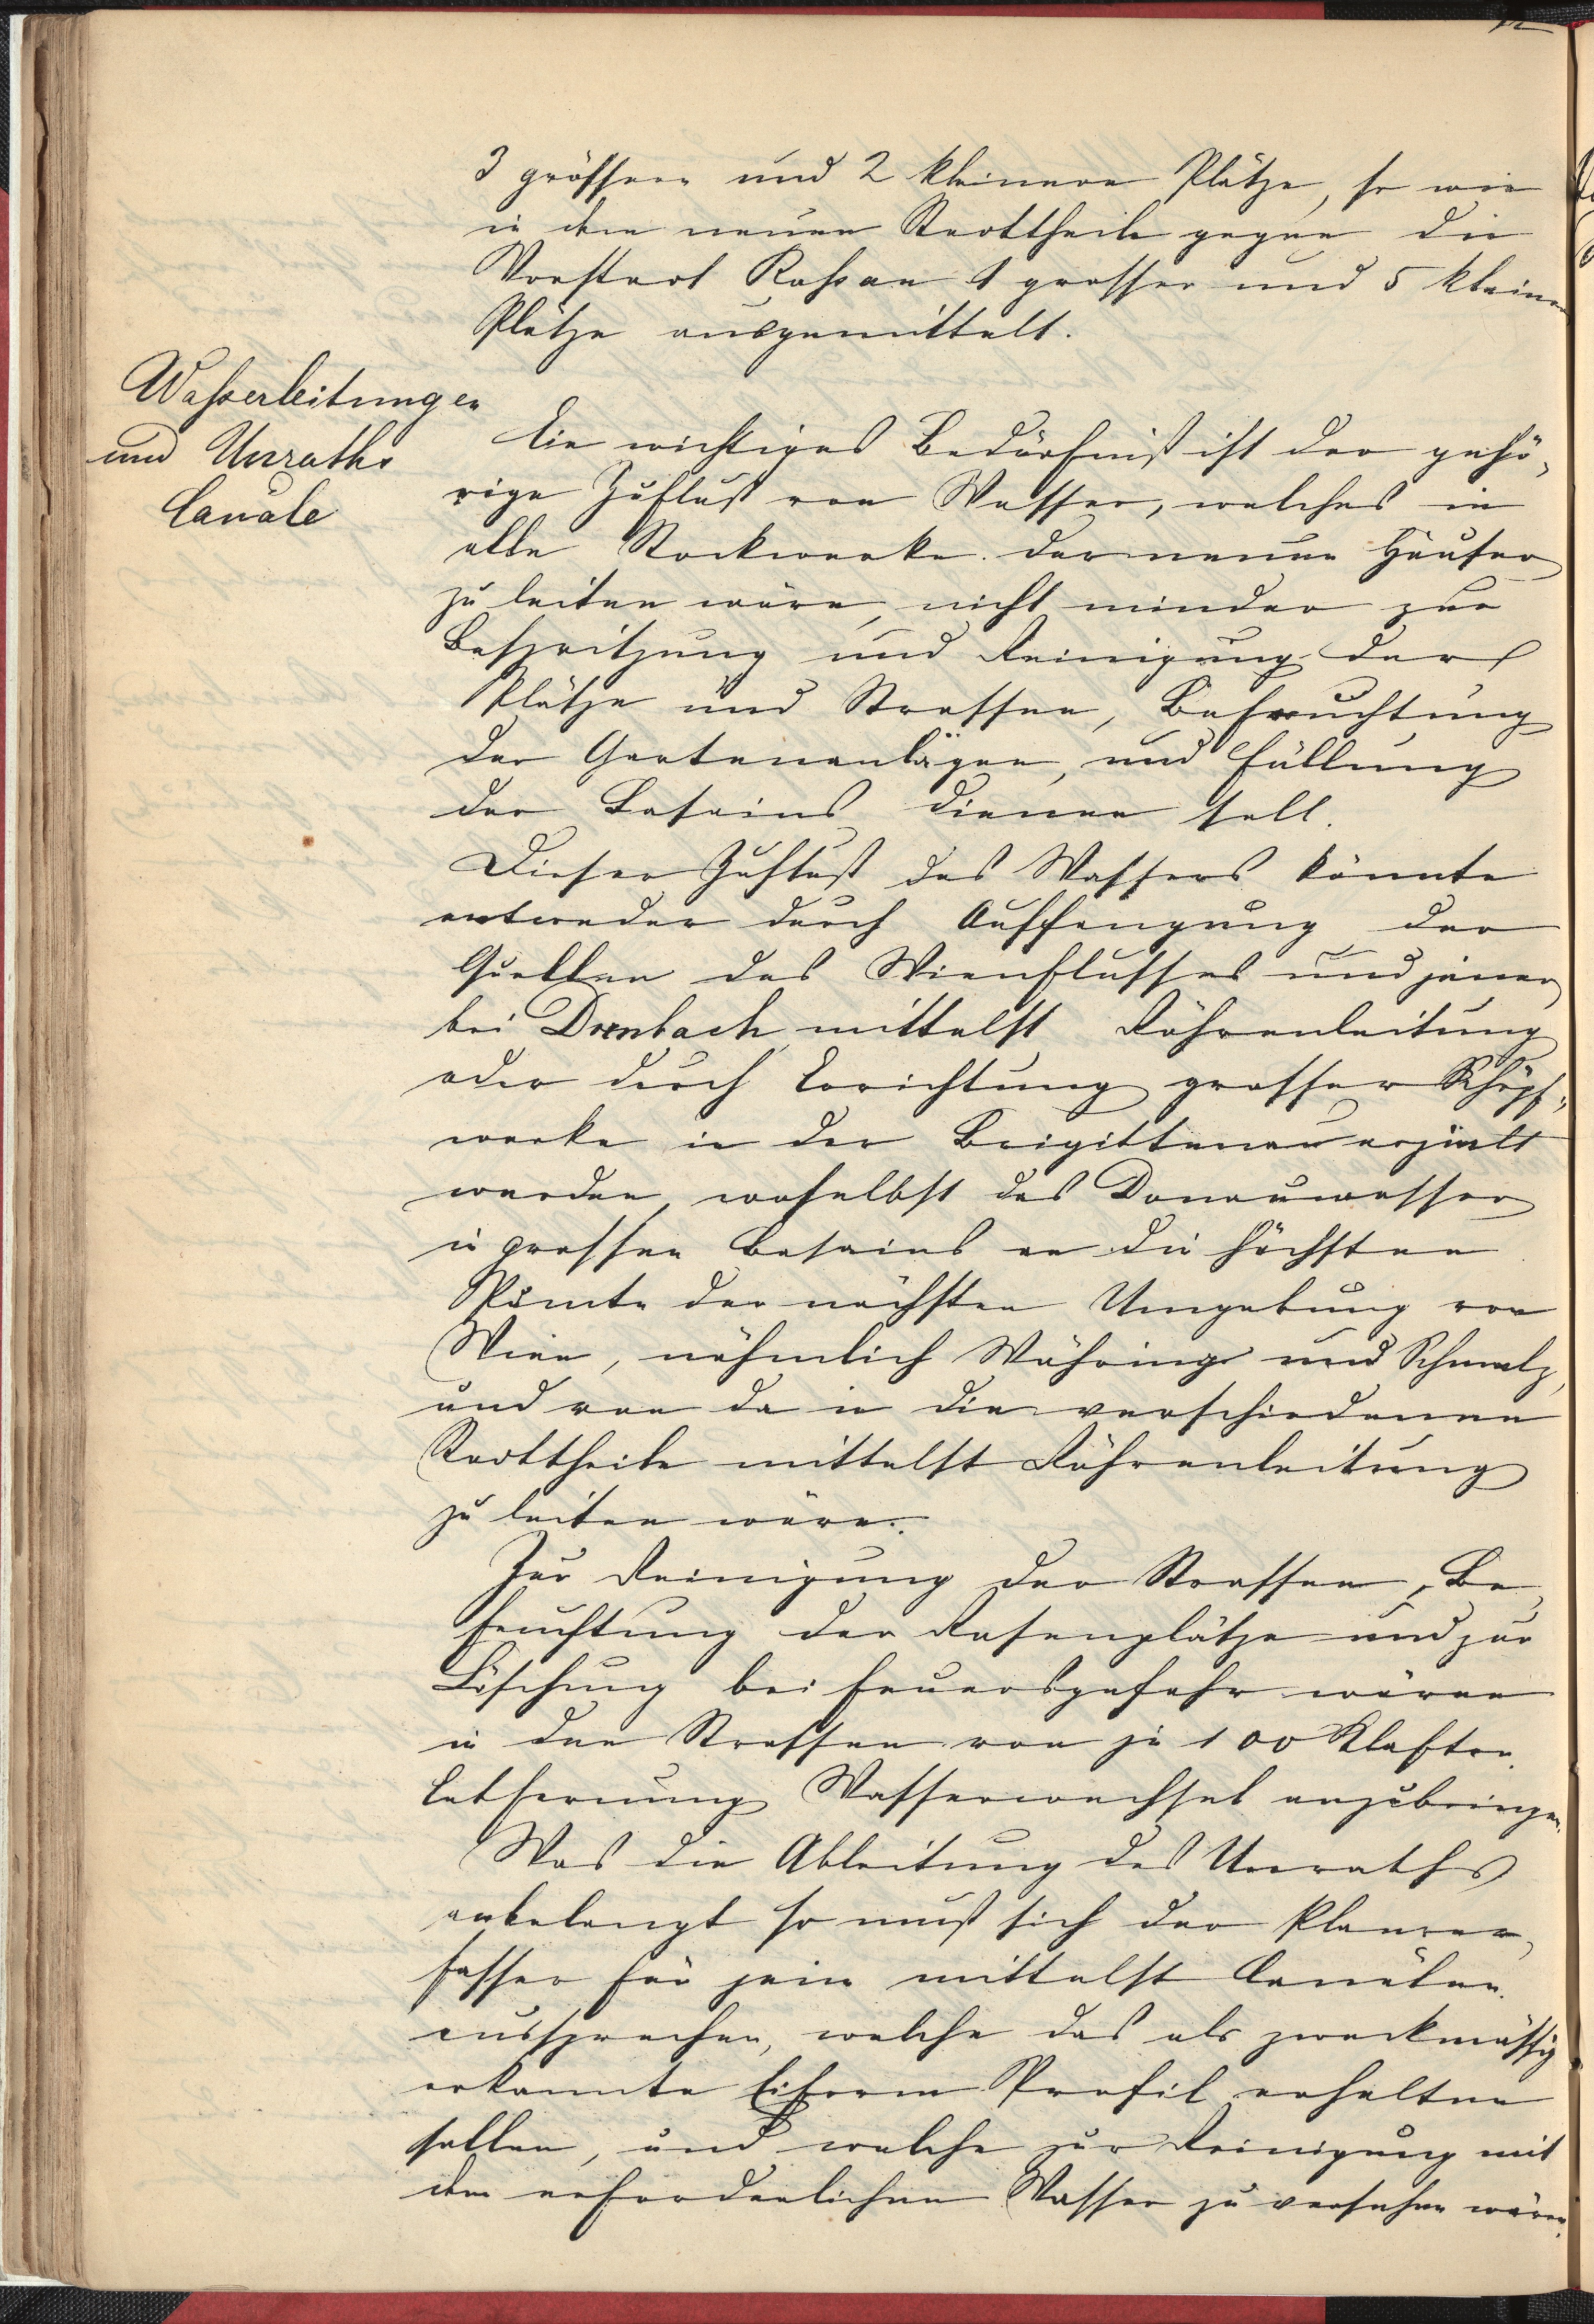 3 grössere und 2 kleinere Plätze, so wie
in dem neuen Stadttheile gegen die
Vorstadt Roßau 1 grosser und 5 kleinere
Plätze ausgemittelt.
Wasserleitungen
und Unraths
Canäle
Ein wichtiges Bedürfniß ist der gehö-
rige Zufluß von Wasser, welches in
alle Stockwerke der neuen Häuser
zu leiten wäre, nicht minder zur
Bespritzung und Reinigung der
Plätze und Strassen, Befeuchtung
der Gartenanlägen, und Füllung
der Bassins dienen soll.
Dieser Zufluß des Wassers könnte
entweder durch Auffangung der
Quellen des Wienflusses und jener
bei Dornbach mittelst Röhrenleitung
oder durch Errichtung grosser Schöpf-
werke in der Brigittenau erzielt
werden, woselbst das Donauwasser
in grossen Bassins an die höchsten
Puncte der nächsten Umgebung von
Wien, nähmlich Währing und Schmelz,
und von da in die verschiedenen
Stadttheile mittelst Röhrenleitung
zu leiten wäre.
Zur Reinigung der Strassen, Be-
feuchtung der Rasenplätze und zur
Löschung bei Feuersgefahr wären
in den Strassen von je 100 Klafter
Entfernung Wasserwechsel anzubringen.
Was die Ableitung des Unraths
anbelangt so muß sich der Planver-
fasser für jene mittelst Canälen
aussprechen, welche das als zweckmässig
erkannte Eiform Profil erhalten
sollen, und welche zur Reinigung mit
dem erforderlichen Wasser zu versehen wären.